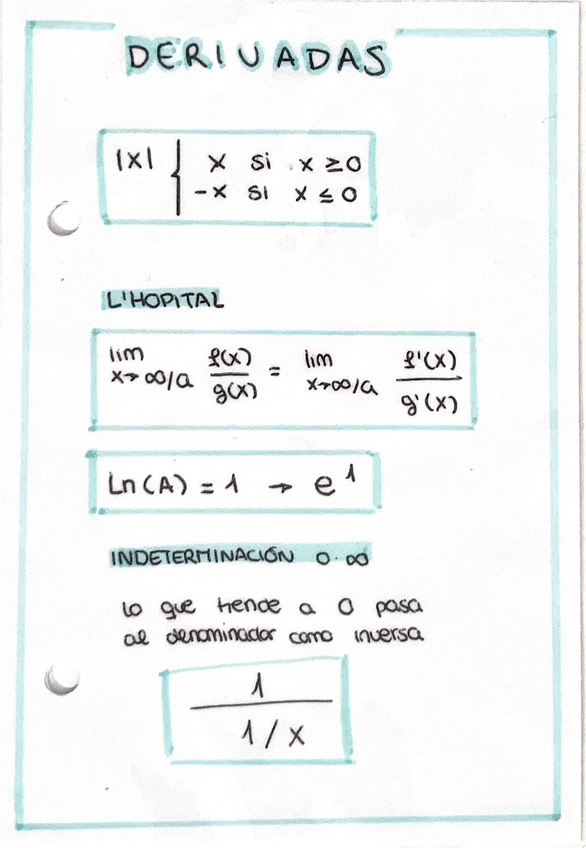 DERIVADAS
|x| { x si x ≥ 0
-x si x ≤ 0
L'HOPITAL
lim x→∞/a f(x)/g(x) = lim x→∞/a f'(x)/g'(x)
Ln(A) = 1 → e^1
INDETERMINACIÓN 0·∞
lo que tiende a 0 pasa
al denominador como inversa
1
1/x